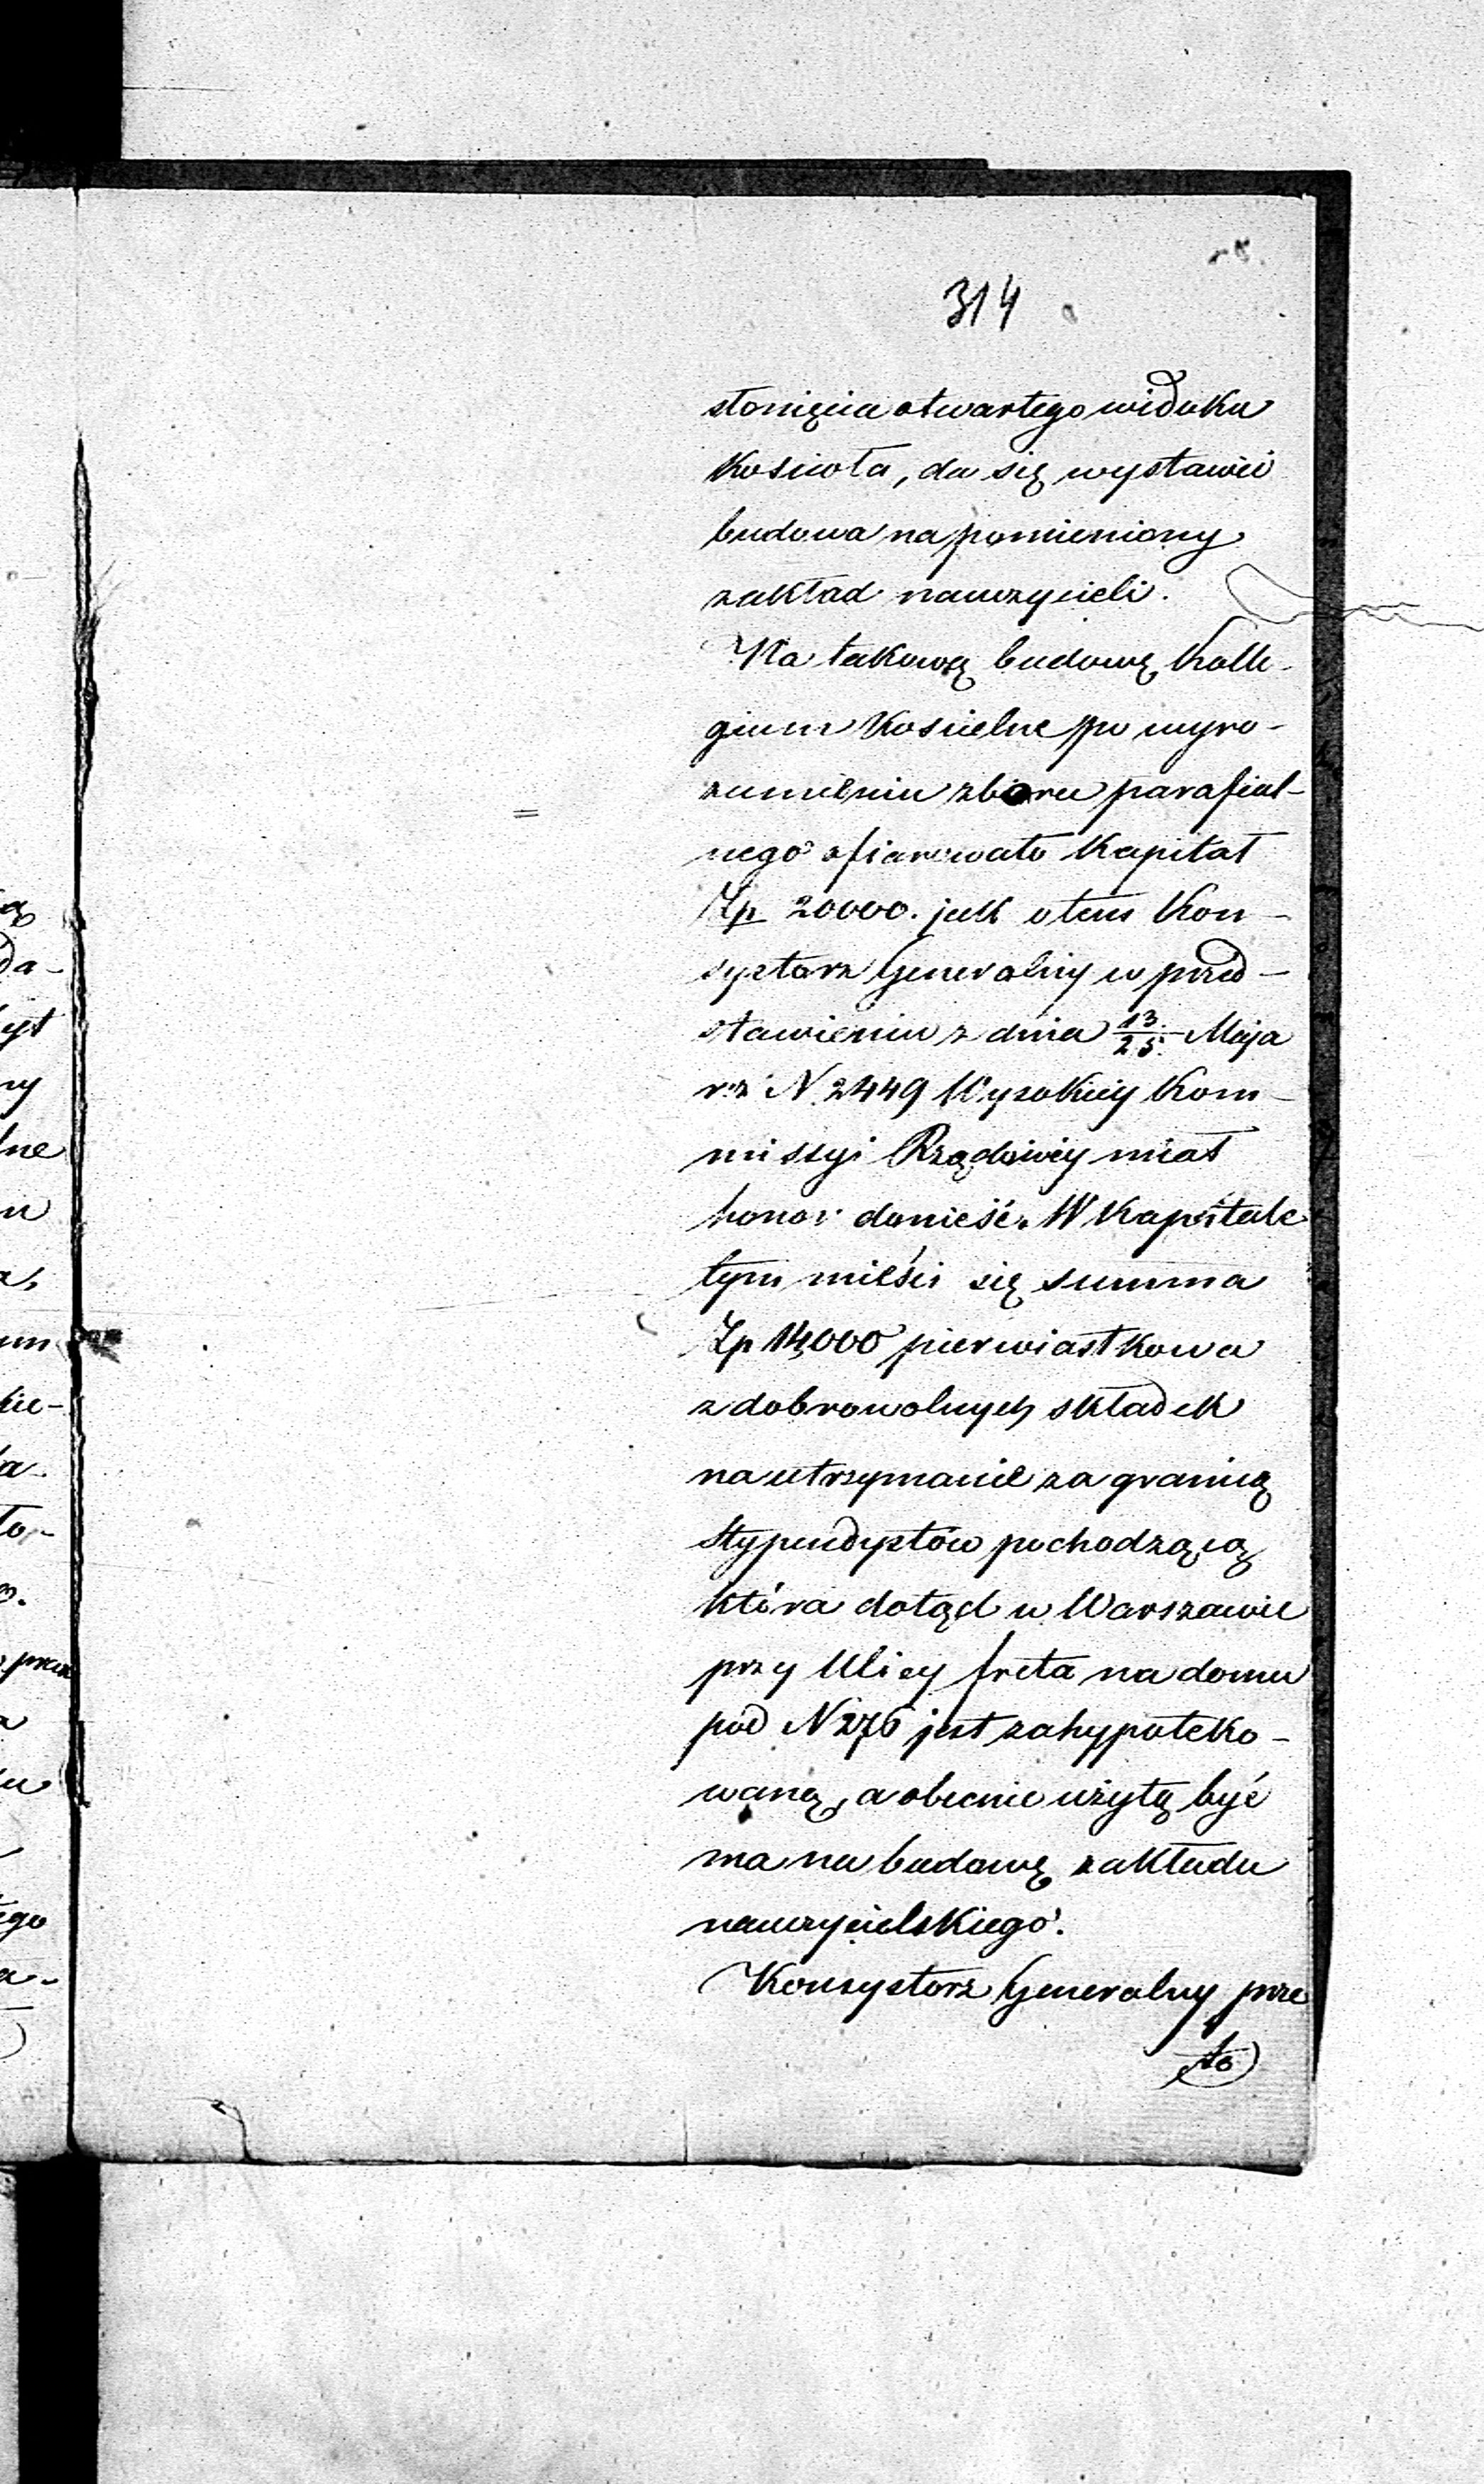 314
słonięcia otwartego widoku
Kościoła, da się wystawić
budowa na pomieniony
zakład nauczycieli.
Na takową budowę Kolle-
gium Kościelne po wyro-
zumieniu zboru parafial-
nego ofiarowało Kapitał
Zp 20000. jak o tem Kon-
systorz Generalny w przed-
stawieniu z dnia 13/25 Maja
r. z. N. 2449 Wysokiey Kom-
missyi Rządowey miał
honor donieść. W Kapitale
tym mieści się summa
Zp 14,000 pierwiastkowa
z dobrowolnych składek
na utrzymanie za granicą
Stypendystów pochodzącą
która dotąd w Warszawie
przy Ulicy freta na domu
pod N 276 jest zahypoteko-
waną, a obecnie użytą być
ma na budowę zakładu
nauczycielskiego.
Konsystorz Generalny prze
to